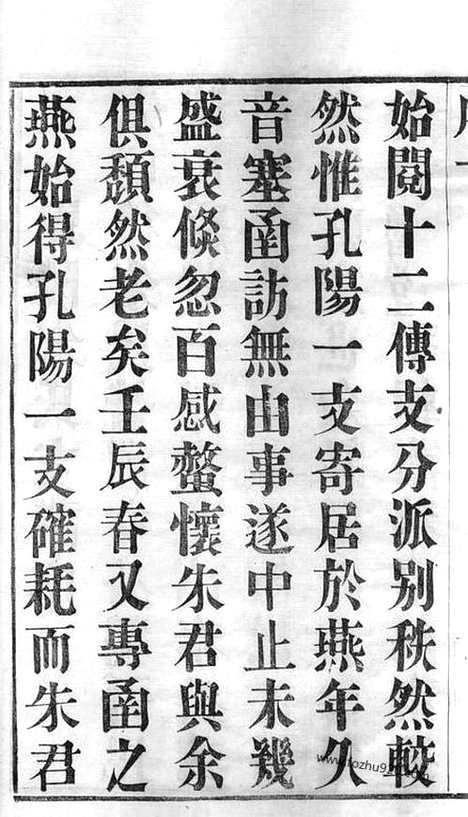 始閱十二傳支分派别秩然較
然惟孔陽一支寄居於燕年久
音塞函訪無由事遂中止未幾
盛衰倏忽百感螫懷朱君與余
俱頹然老矣壬辰春又專函之
燕始得孔陽一支確耗而朱君